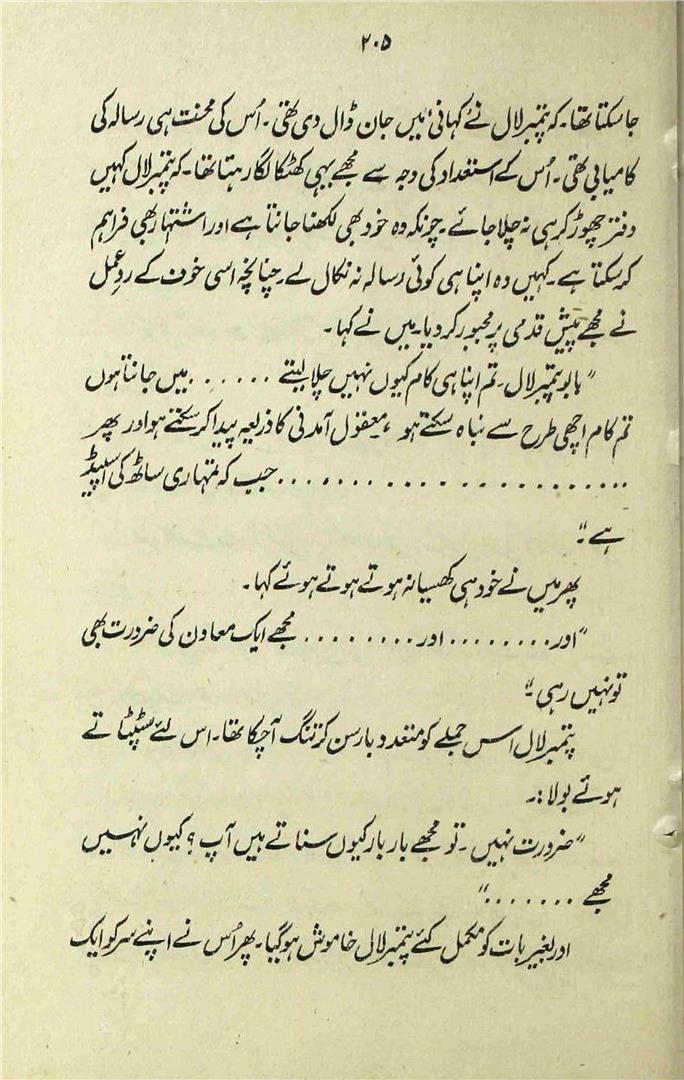 ۲۰۵
جا سکتا تھا۔ کہ پتمبر لال نے "کہانی" میں جان ڈال دی تھی۔ اُس کی محنت ہی رسالہ کی
کامیابی تھی۔ اُس کے استعداد کی وجہ سے مجھے یہی کھٹکا لگا رہتا تھا۔ کہ پتمبر لال کہیں
دفتر چھوڑ کر ہی نہ چلا جائے۔ چونکہ وہ خود بھی لکھنا جانتا ہے اور اشتہار بھی فراہم
کر سکتا ہے۔ کہیں وہ اپنا ہی کوئی رسالہ نہ نکال لے۔ چنانچہ اسی خوف کے ردِعمل
نے مجھے پیش قدمی پر مجبور کر دیا۔ میں نے کہا۔
"بابو پتمبر لال۔ تم اپنا ہی کام کیوں نہیں چلا لیتے ...... میں جانتا ہوں
تم کام اچھی طرح سے نباہ سکتے ہو، معقول آمدنی کا ذریعہ پیدا کر سکتے ہو اور پھر
........................ جب کہ تمہاری ساٹھ کی اسپیڈ
ہے۔"
پھر میں نے خود ہی کھسیانہ ہوتے ہوتے ہوئے کہا۔
"اور......... اور......... مجھے ایک معاون کی ضرورت بھی
تو نہیں رہی۔"
پتمبر لال اس جملے کو متعدد بار سن کر تنگ آ چکا تھا۔ اس لئے سٹپٹاتے
ہوئے بولا:۔
"ضرورت نہیں۔ تو مجھے بار بار کیوں سناتے ہیں آپ؟ کیوں نہیں
مجھے ......."
اور بغیر بات کو مکمل کئے پتمبر لال خاموش ہو گیا۔ پھر اُس نے اپنے سر کو ایک